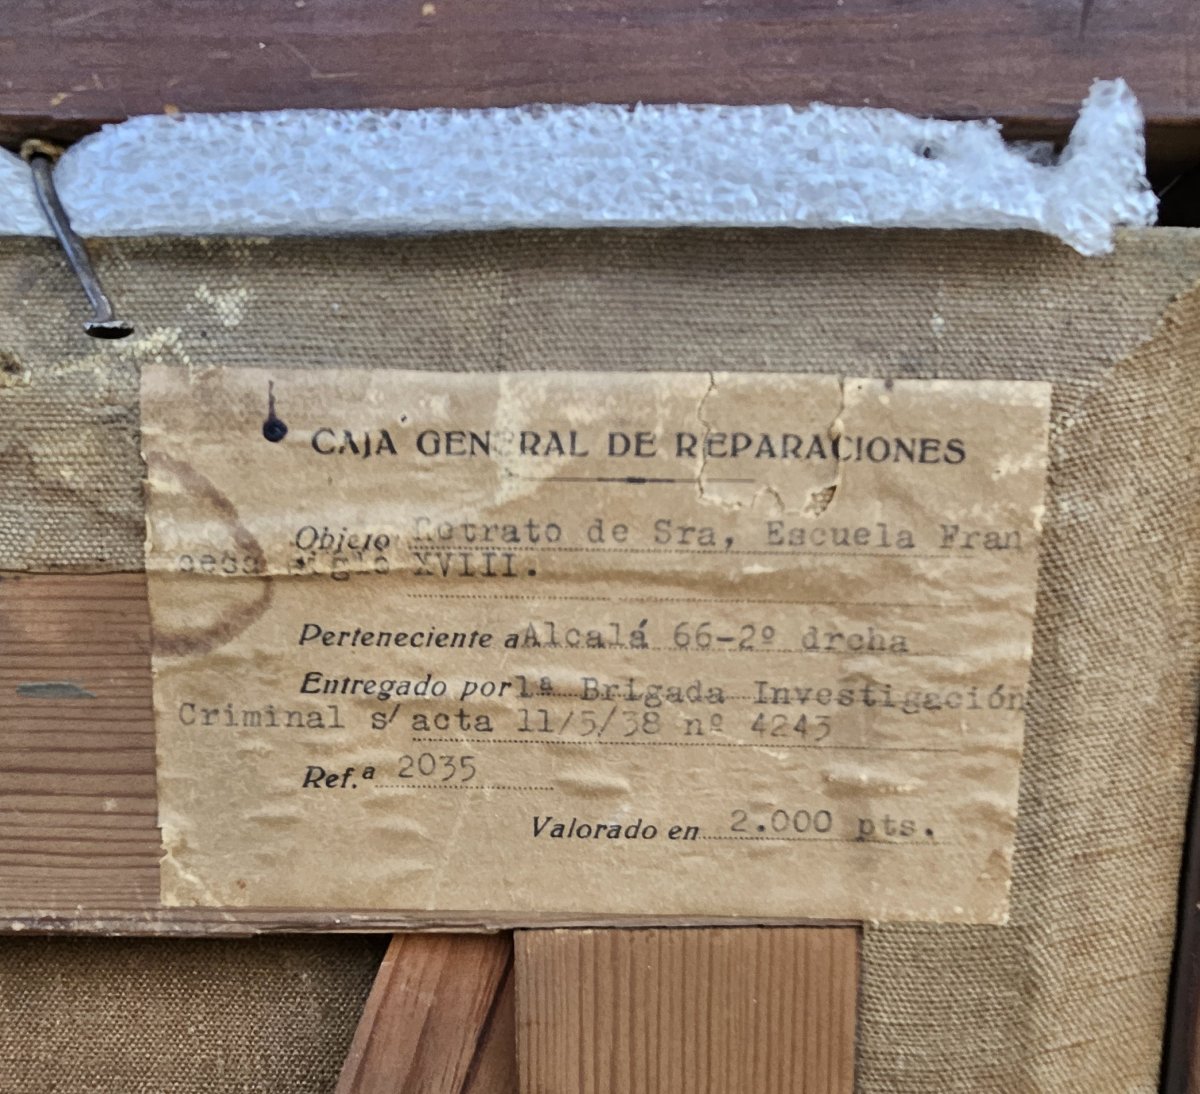 CAJA GENERAL DE REPARACIONES
Objeto Retrato de Sra, Escuela Fran
cesa siglo XVIII.
Perteneciente a Alcalá 66-2º drcha
Entregado por 1ª Brigada Investigación
Criminal s/ acta 11/5/38 nº 4243
Ref.ª 2035
Valorado en 2.000 pts.